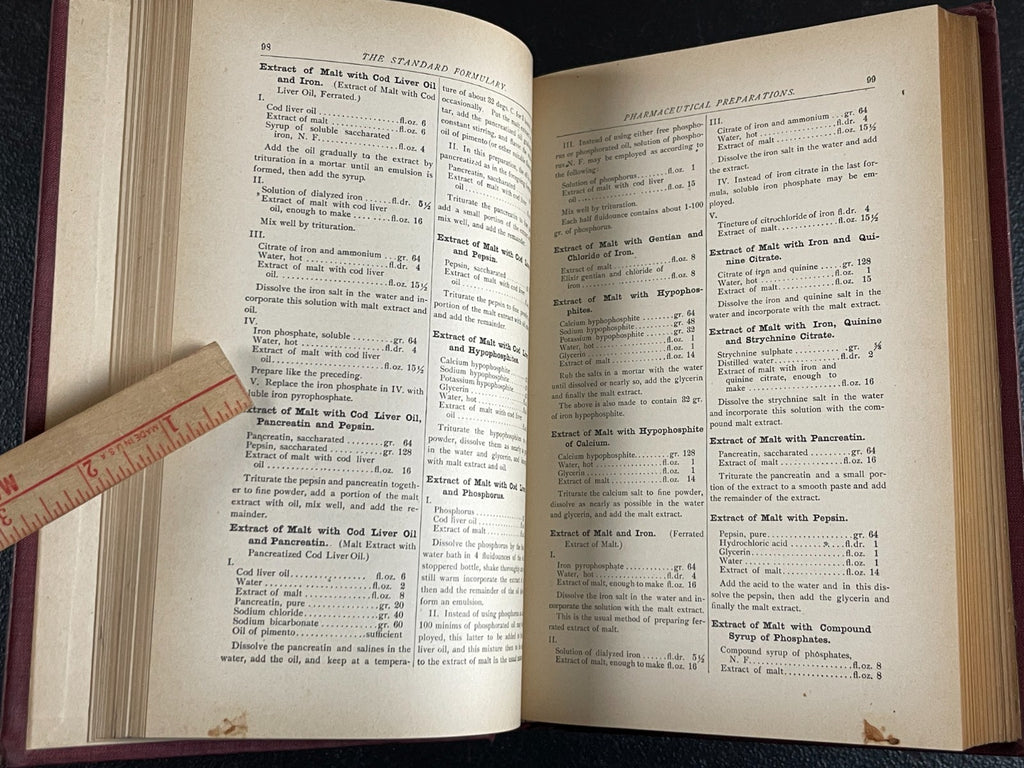 98
THE STANDARD FORMULARY.
Extract of Malt with Cod Liver Oil
and Iron. (Extract of Malt with Cod
Liver Oil, Ferrated.)
I.
Cod liver oil....................fl.oz. 6
Extract of malt................fl.oz. 6
Syrup of soluble saccharated
iron, N. F.....................fl.oz. 4
Add the oil gradually to the extract by
trituration in a mortar until an emulsion is
formed, then add the syrup.
II.
Solution of dialyzed iron.....fl.dr. 5½
Extract of malt with cod liver
oil, enough to make........fl.oz. 16
Mix well by trituration.
III.
Citrate of iron and ammonium...gr. 64
Water, hot.....................fl.dr. 4
Extract of malt with cod liver
oil............................fl.oz. 15½
Dissolve the iron salt in the water and in-
corporate this solution with malt extract and
oil.
IV.
Iron phosphate, soluble........gr. 64
Water, hot.....................fl.dr. 4
Extract of malt with cod liver
oil............................fl.oz. 15½
Prepare like the preceding.
V. Replace the iron phosphate in IV. with
iron pyrophosphate.
of Malt with Cod Liver Oil,
Pancreatin and Pepsin.
Pancreatin, saccharated........gr. 64
Pepsin, saccharated............gr. 128
Extract of malt with cod liver
oil............................fl.oz. 16
Triturate the pepsin and pancreatin togeth-
er to fine powder, add a portion of the malt
extract with oil, mix well, and add the re-
mainder.
Extract of Malt with Cod Liver Oil
and Pancreatin. (Malt Extract with
Pancreatized Cod Liver Oil.)
I.
Cod liver oil..................fl.oz. 6
Water..........................fl.oz. 2
Extract of malt................fl.oz. 8
Pancreatin, pure...............gr. 20
Sodium chloride................gr. 40
Sodium bicarbonate.............gr. 60
Oil of pimento.................sufficient
Dissolve the pancreatin and salines in the
water, add the oil, and keep at a tempera-
ture of about 32 degs. C. for
occasionally. Put the
tar, add the pancreatized
constant stirring, and
oil of pimento (or other
II. In this preparation, the
pancreatized as in the foregoing
Pancreatin, saccharated
Extract of malt with cod
oil
Triturate the pancreatin to
add a small portion of the
mix well, and add the remainder
Extract of Malt with Cod
and Pepsin.
Pepsin, saccharated
Extract of malt with cod
oil
Triturate the pepsin to fine
portion of the malt extract with
and add the remainder.
Extract of Malt with Cod
and Hypophosphites.
Calcium hypophosphite
Sodium hypophosphite
Potassium hypophosphite
Glycerin
Water, hot
Extract of malt with cod liver
oil
Triturate the hypophosphites
powder, dissolve them as nearly
in the water and glycerin, and
with malt extract and oil.
Extract of Malt with Cod
and Phosphorus.
I.
Phosphorus
Cod liver oil
Extract of malt
Dissolve the phosphorus by the
water bath in 4 fluidounces of the
stoppered bottle, shake thoroughly
still warm incorporate the extract
then add the remainder of the
form an emulsion.
II. Instead of using phosphorus
100 minims of phosphorated oil
ployed, this latter to be added to
liver oil, and this mixture then
to the extract of malt in the usual
99
PHARMACEUTICAL PREPARATIONS.
III. Instead of using either free phospho-
rus or phosphorated oil, solution of phospho-
rus, N. F. may be employed as according to
the following:
Solution of phosphorus.........fl.oz. 1
Extract of malt with cod liver
oil............................fl.oz. 15
Mix well by trituration.
Each half fluidounce contains about 1-100
gr. of phosphorus.
Extract of Malt with Gentian and
Chloride of Iron.
Extract of malt................fl.oz. 8
Elixir gentian and chloride of
iron...........................fl.oz. 8
Extract of Malt with Hypophos-
phites.
Calcium hyphophosphite.........gr. 64
Sodium hypophosphite...........gr. 48
Potassium hypophosphite........gr. 32
Water, hot.....................fl.oz. 1
Glycerin.......................fl.oz. 1
Extract of malt................fl.oz. 14
Rub the salts in a mortar with the water
until dissolved or nearly so, add the glycerin
and finally the malt extract.
The above is also made to contain 32 gr.
of iron hypophosphite.
Extract of Malt with Hypophosphite
of Calcium.
Calcium hypophosphite..........gr. 128
Water, hot.....................fl.oz. 1
Glycerin.......................fl.oz. 1
Extract of malt................fl.oz. 14
Triturate the calcium salt to fine powder,
dissolve as nearly as possible in the water
and glycerin, and add the malt extract.
Extract of Malt and Iron. (Ferrated
Extract of Malt.)
I.
Iron pyrophosphate.............gr. 64
Water, hot.....................fl.dr. 4
Extract of malt, enough to make fl.oz. 16
Dissolve the iron salt in the water and in-
corporate the solution with the malt extract.
This is the usual method of preparing fer-
rated extract of malt.
II.
Solution of dialyzed iron......fl.dr. 5½
Extract of malt, enough to make fl.oz. 16
III.
Citrate of iron and ammonium...gr. 64
Water, hot.....................fl.dr. 4
Extract of malt................fl.oz. 15½
Dissolve the iron salt in the water and add
the extract.
IV. Instead of iron citrate in the last for-
mula, soluble iron phosphate may be em-
ployed.
V.
Tincture of citrochloride of iron fl.dr. 4
Extract of malt................fl.oz. 15½
Extract of Malt with Iron and Qui-
nine Citrate.
Citrate of iron and quinine....gr. 128
Water, hot.....................fl.oz. 1
Extract of malt................fl.oz. 15
Dissolve the iron and quinine salt in the
water and incorporate with the malt extract.
Extract of Malt with Iron, Quinine
and Strychnine Citrate.
Strychnine sulphate............gr. ⅛
Distilled water................fl.dr. 2
Extract of malt with iron and
quinine citrate, enough to
make...........................fl.oz. 16
Dissolve the strychnine salt in the water
and incorporate this solution with the com-
pound malt extract.
Extract of Malt with Pancreatin.
Pancreatin, saccharated........gr. 64
Extract of malt................fl.oz. 16
Triturate the pancreatin and a small por-
tion of the extract to a smooth paste and add
the remainder of the extract.
Extract of Malt with Pepsin.
Pepsin, pure...................gr. 64
Hydrochloric acid..............fl.dr. 1
Glycerin.......................fl.oz. 1
Water..........................fl.oz. 1
Extract of malt................fl.oz. 14
Add the acid to the water and in this dis-
solve the pepsin, then add the glycerin and
finally the malt extract.
Extract of Malt with Compound
Syrup of Phosphates.
Compound syrup of phosphates,
N. F...........................fl.oz. 8
Extract of malt................fl.oz. 8
1
MADE IN U.S.A.
2
3